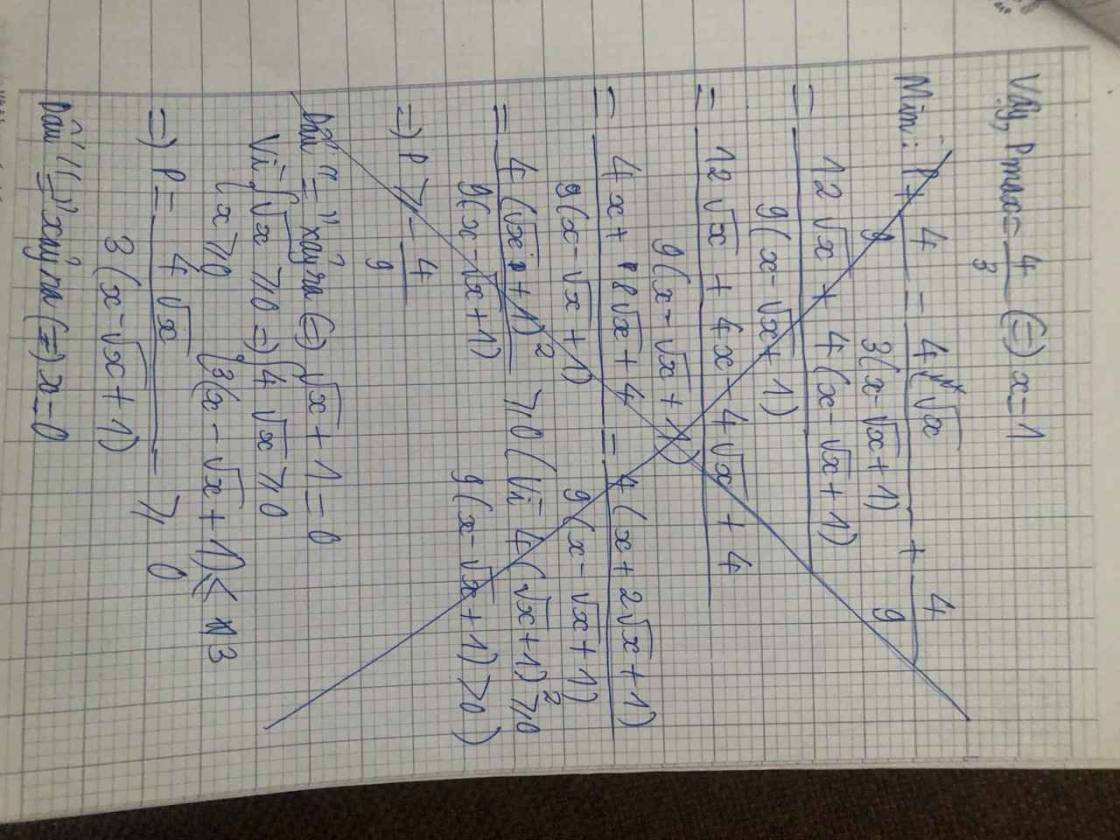 Vậy Pmax = 4/3 (=) x = 1
Min: P + 4/9 = 4√x / 3(x - √x + 1) + 4/9
= 12√x + 4(x - √x + 1) / 9(x - √x + 1)
= 12√x + 4x - 4√x + 4 / 9(x - √x + 1)
= 4x + 8√x + 4 / 9(x - √x + 1) = 4(x + 2√x + 1) / 9(x - √x + 1)
= 4(√x + 1)² / 9(x - √x + 1) ⩾ 0 (Vì 4(√x + 1)² ⩾ 0
9(x - √x + 1) > 0)
=) P ⩾ - 4/9
Dấu "=" xảy ra (=) √x + 1 = 0
Vì { √x ⩾ 0 =) { 4√x ⩾ 0
{ x ⩾ 0 { 3(x - √x + 1) ⩽ 3
=) P = 4√x / 3(x - √x + 1) ⩾ 0
Dấu "=" xảy ra (=) x = 0